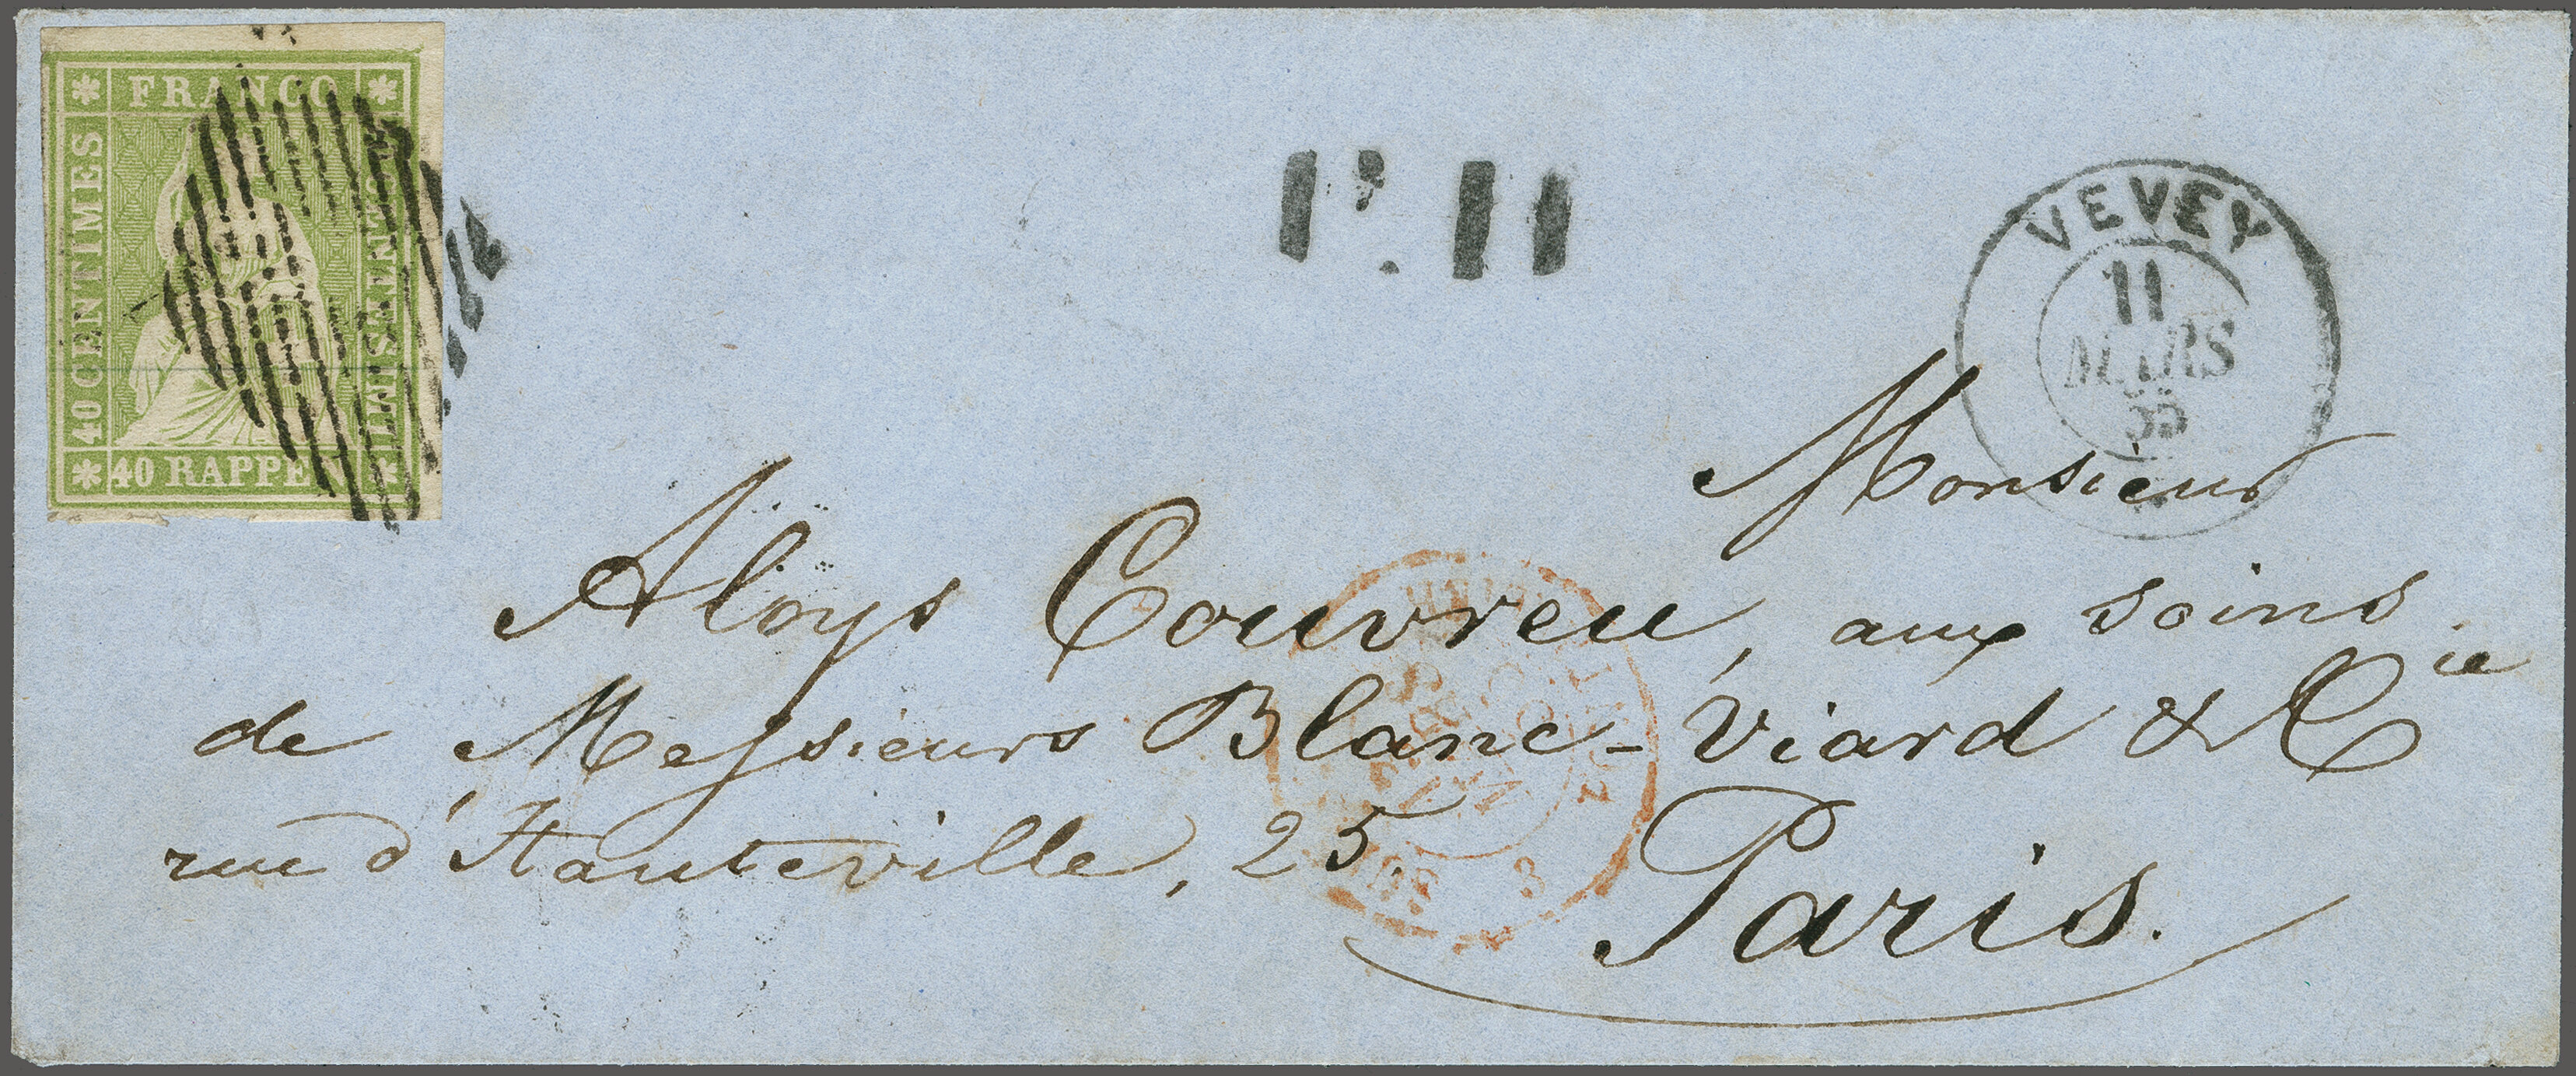 FRANCO
40 CENTIMES
CENTESIMI
40 RAPPEN
VEVEY
11
MARS
55
Monsieur
Aloys Couvreu, aux soins
de Messieurs Blanc-Viard & Cie
rue d'Hauteville, 25.
Paris.